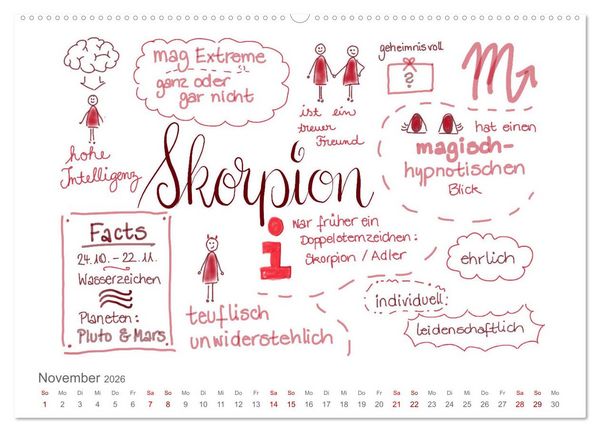 mag Extreme
ganz oder
gar nicht
geheimnisvoll
?
hohe
Intelligenz
ist ein
treuer
Freund
hat einen
magisch-
hypnotischen
Blick
Skorpion
Facts
24.10. - 22.11.
Wasserzeichen
Planeten:
Pluto & Mars
i
war früher ein
Doppelsternzeichen:
Skorpion / Adler
ehrlich
individuell
leidenschaftlich
teuflisch
unwiderstehlich
November 2026
So Mo Di Mi Do Fr Sa So Mo Di Mi Do Fr Sa So Mo Di Mi Do Fr Sa So Mo Di Mi Do Fr Sa So Mo
1 2 3 4 5 6 7 8 9 10 11 12 13 14 15 16 17 18 19 20 21 22 23 24 25 26 27 28 29 30